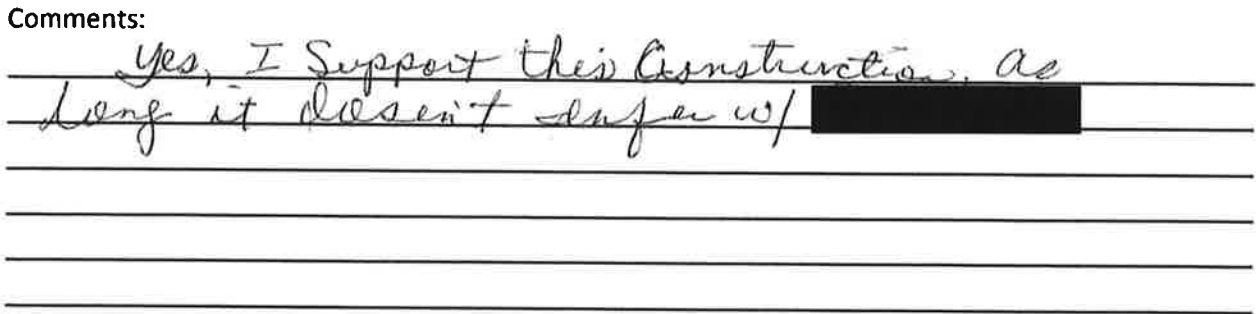 Comments:
Yes, I Support this Construction, as
long it doesen't infer w/